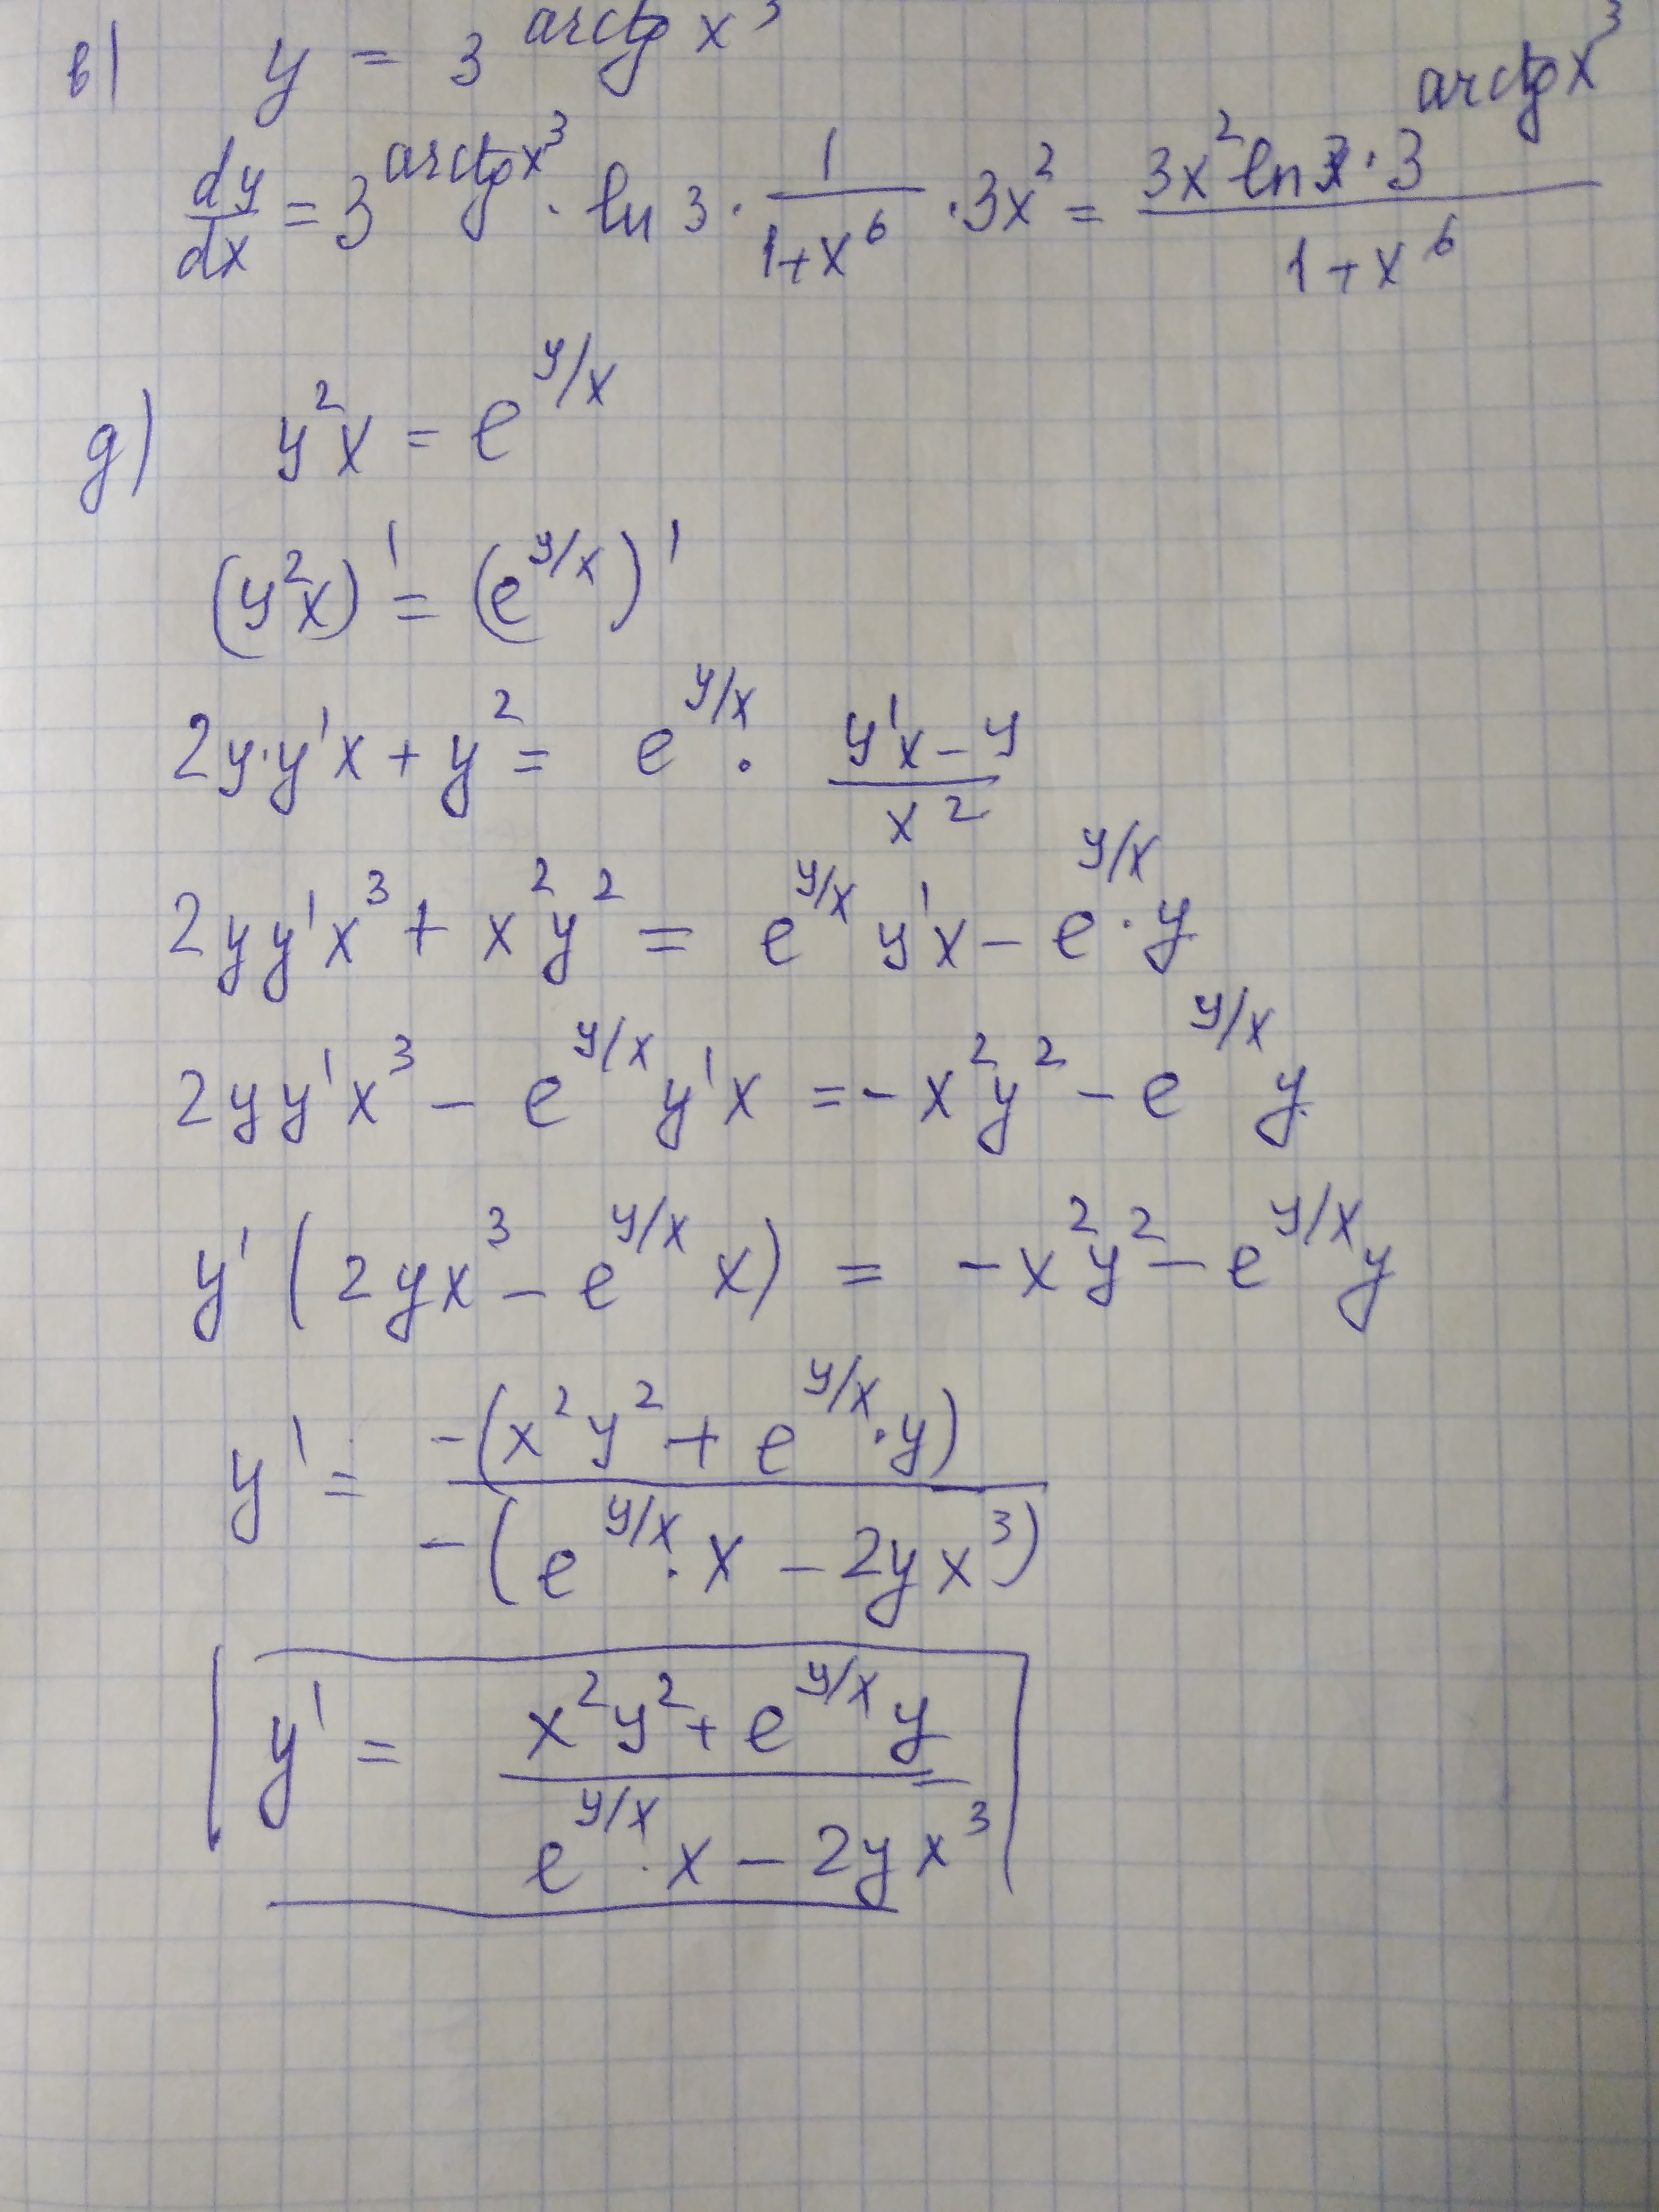 в) y = 3^{arctg x^3}
dy/dx = 3^{arctg x^3} · ln 3 · 1/(1+x^6) · 3x^2 = (3x^2 ln 3 · 3^{arctg x^3})/(1+x^6)
д) y^2x = e^{y/x}
(y^2x)' = (e^{y/x})'
2y·y'x + y^2 = e^{y/x} · (y'x - y)/x^2
2yy'x^3 + x^2y^2 = e^{y/x} y'x - e^{y/x} · y
2yy'x^3 - e^{y/x} y'x = -x^2y^2 - e^{y/x} y
y' (2yx^3 - e^{y/x} x) = -x^2y^2 - e^{y/x} y
y' = -(x^2y^2 + e^{y/x} · y)/-(e^{y/x} · x - 2yx^3)
y' = (x^2y^2 + e^{y/x} y)/(e^{y/x} · x - 2yx^3)